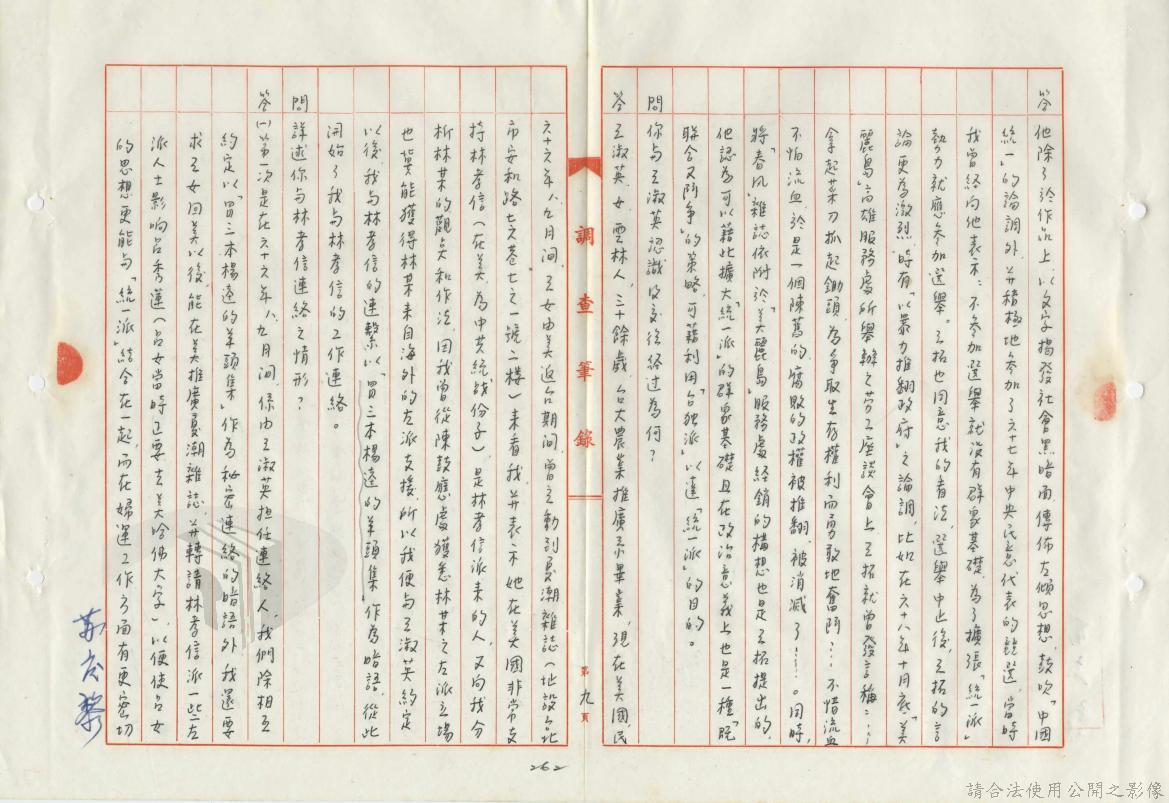 答 他除了於作品上以文字揭發社會黑暗面傳佈左傾思想,鼓吹「中國
統一」的論調外,并積極地參加了六十七年中央民意代表的競選,當時
我曾經向他表示:不參加選舉就沒有群眾基礎,為了擴張「統一派」
勢力就應參加選舉。王拓也同意我的看法,選舉中止後,王拓的言
論更為激烈,時有「以暴力推翻政府」之論調,比如在六十八年十月底「美
麗島」高雄服務處所舉辦之勞工座談會上,王拓就曾發言稱:……
拿起菜刀抓起鋤頭,為爭取生存權利而勇敢地奮鬥…不惜流血
不怕流血,於是一個陳舊的,腐敗的政權被推翻,被消滅了……。同時,
將「春風」雜誌依附於「美麗島」服務處經銷的構想也是王拓提出的,
他認為可以藉此擴大「統一派」的群眾基礎且在政治意義上也是一種「既
聯合又鬥爭」的策略,可藉利用「台独派」以達「統一派」的目的。
問 你与王淑英認識及交往經过為何?
答 王淑英,女,雲林人,三十餘歲,台大農業推廣系畢業,現在美國,民
調查筆錄
第九頁
六十六年八、九月間,王女由美返台期間,曾主動到夏潮雜誌(地設台北
市安和路七六巷七之一號二樓)来看我,并表示她在美國非常支
持林孝信(在美為中共統战份子),是林孝信派来的人,又向我分
析林某的觀点和作法,因我曾從陳鼓應處獲悉林某之左派立場
也冀能獲得林某来自海外的左派支援,所以我便与王淑英約定
以後,我与林孝信的連繫以「買三本楊逵的羊頭集」作為暗語,從此
開始了我与林孝信的工作連絡。
問 詳述你与林孝信連絡之情形?
答 (一)第一次是在六十六年八、九月間,係由王淑英担任連絡人,我們除相互
約定以「買三本楊逵的羊頭集」作為秘密連絡的暗語外,我還要
求王女回美以後,能在美推廣夏潮雜誌,并轉請林孝信派一些左
派人士影响呂秀蓮(呂女當時正要去美哈佛大学),以便使呂女
的思想更能与「統一派」結合在一起,而在婦運工作方面有更密切
蘇慶黎
262
請合法使用公開之影像